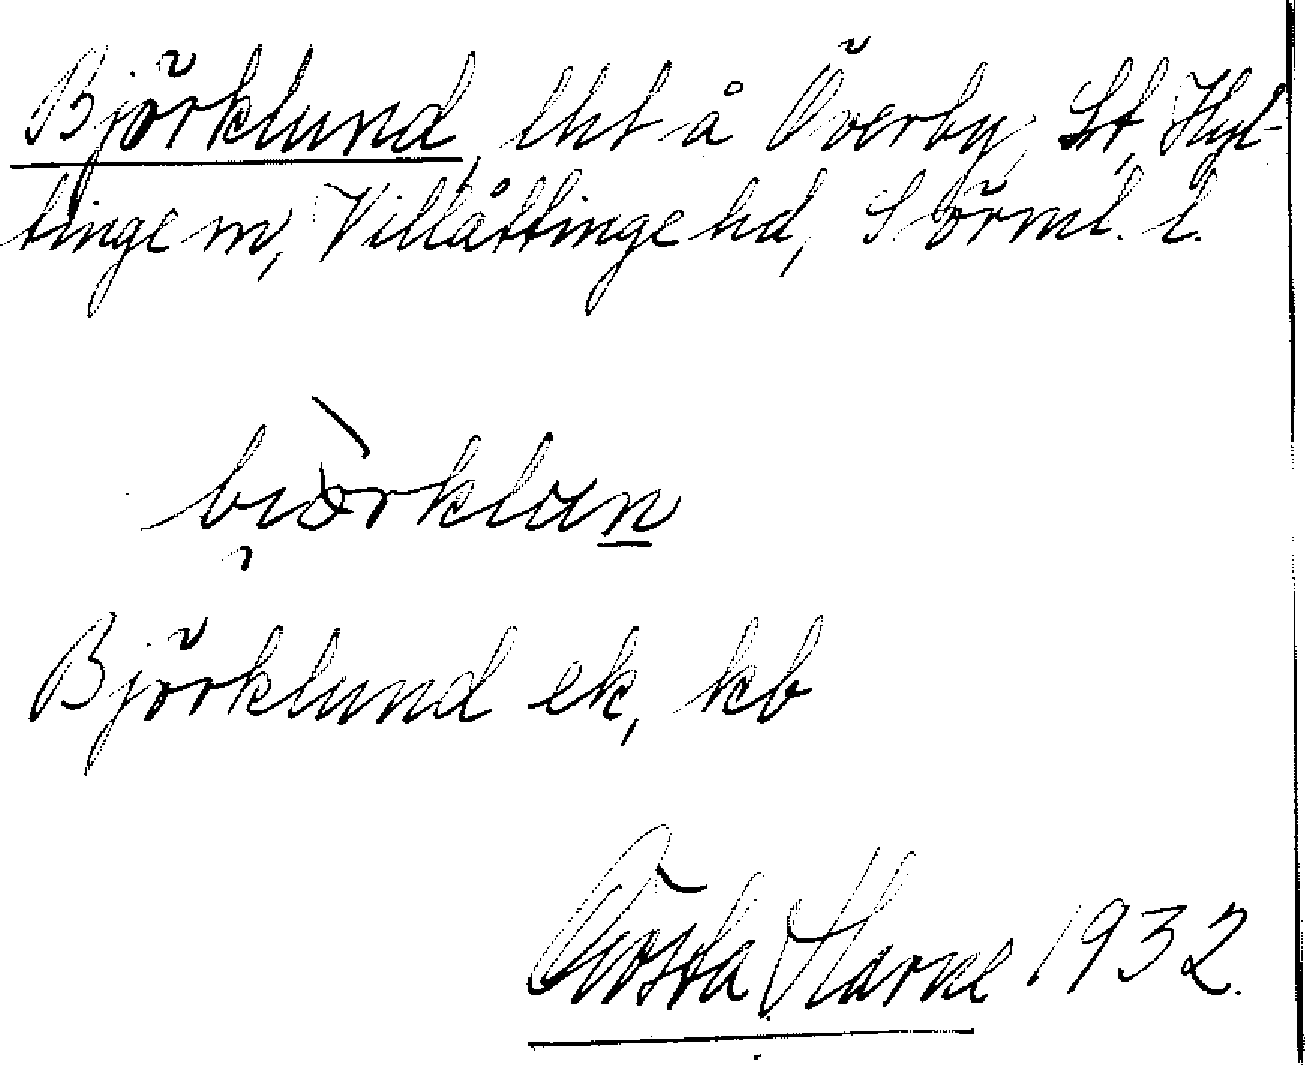 Björklund, lht å Överby, St. Hyl-
tinge sn, Villåttinge hd, Sörml. l.
bi̯òrklun̲
Björklund ek, kb
Gösta Harne 1932.